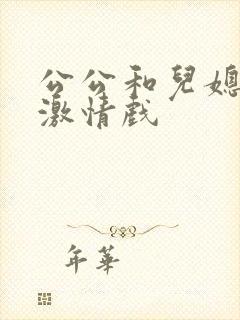 公公和兒媳
激情戲
年華